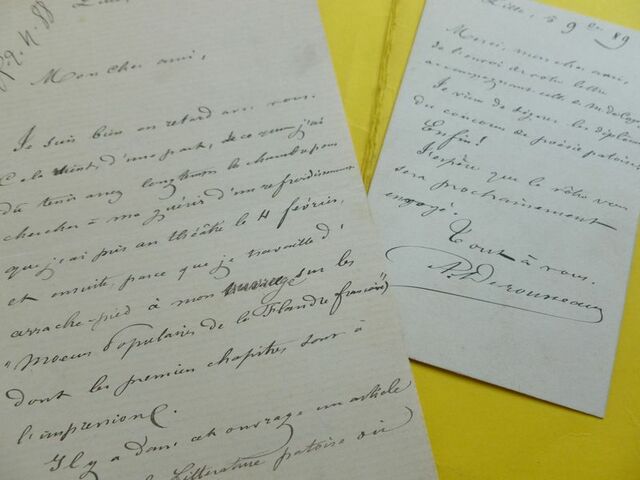 Lille,
R. 9. N. 88
Mon cher ami,
Je suis bien en retard avec vous.
Cela vient, d'une part, de ce que j'ai
dû tenir assez longtemps la chambre pour
chercher à me guérir d'un refroidissement
que j'ai pris au théâtre le 4 février,
et ensuite, parce que je travaille d'
arrache-pied à mon ouvrage sur les
"Moeurs Populaires de la Flandre française"
dont les premiers chapitres sont à
l'impression.
Il y a dans cet ouvrage un article
la Littérature patoise où
Lille, 9 89
Merci, mon cher ami,
de l'envoi de votre lettre
accompagnant celle de M.
Je viens de signer les diplômes
du concours de poésie patoise.
Enfin!
J'espère que le vôtre vous
sera prochainement
engagé.
Tout à vous.
A. Desrousseaux